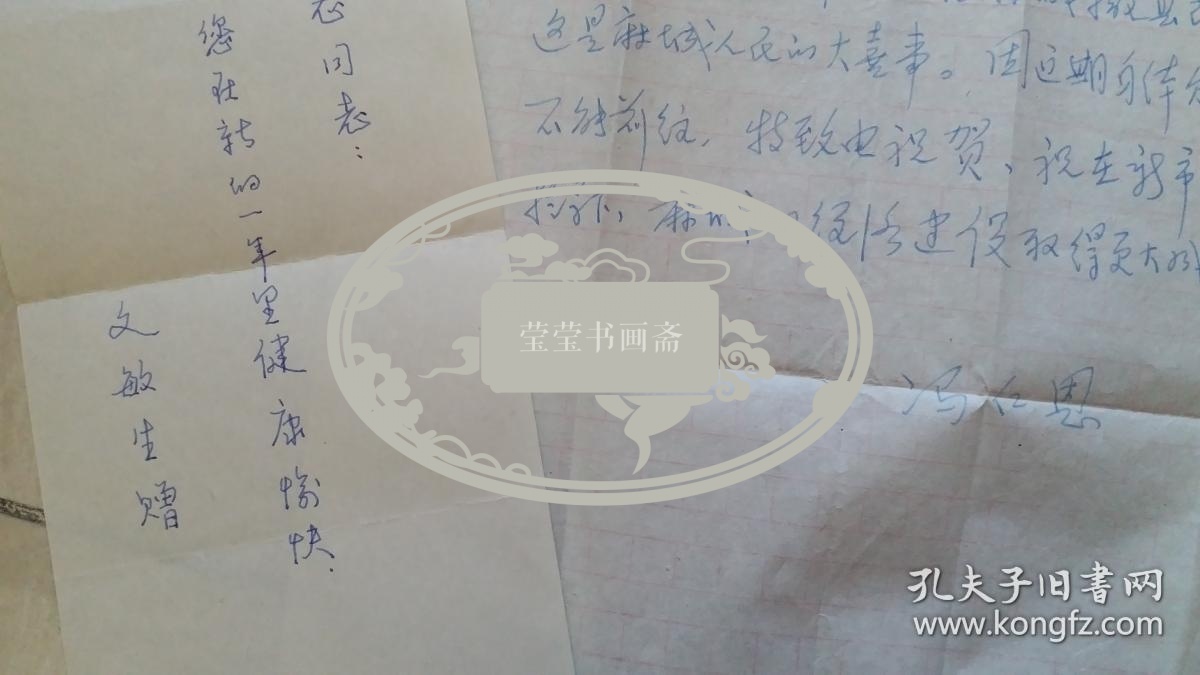 志同志：
您在新的一年里健康愉快.
文敏生赠
撤县
这是麻城人民的大喜事。因近期身体欠
不能前往，特致电祝贺、祝在新市
麻城 经济建设取得更大成
冯仁恩
莹莹书画斋
孔夫子旧书网
www.kongfz.com